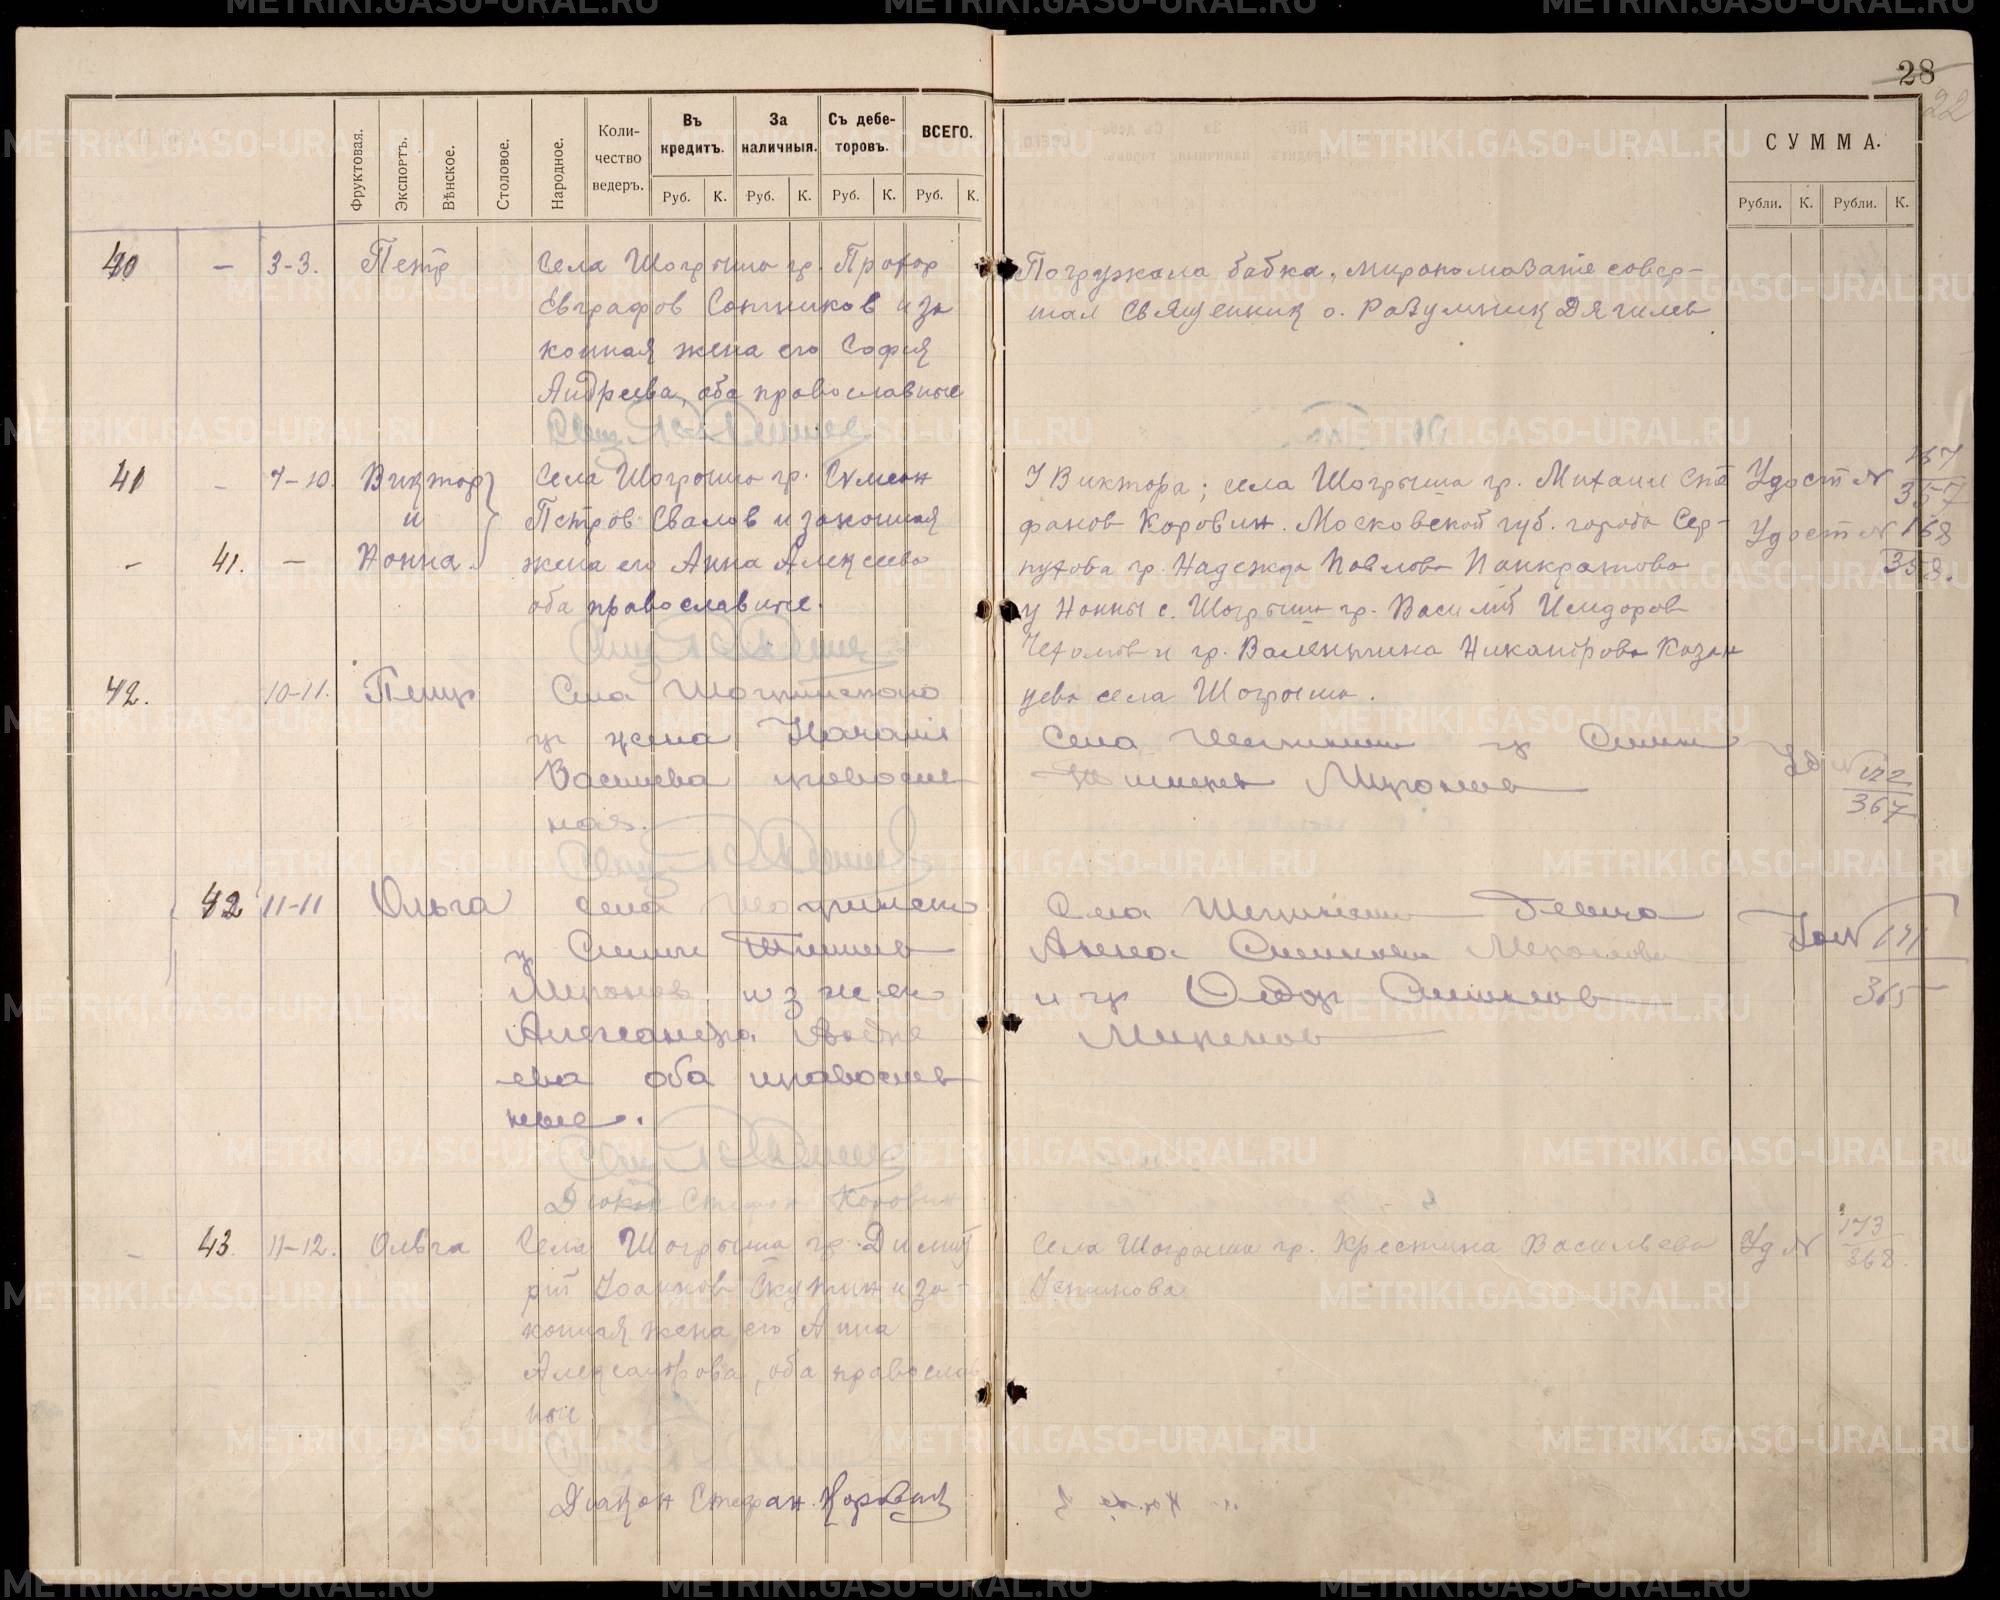 28
22
Фруктовая.
Экспортъ.
Вѣнское.
Столовое.
Народное.
Коли-
чество
ведеръ.
Въ
кредитъ.
За
наличныя.
Съ дебе-
торовъ.
ВСЕГО.
Руб. К. Руб. К. Руб. К. Руб. К.
СУММА.
Рубли. К. Рубли. К.
40 — 3-3. Петр
Села Шогрыша гр. Прохор
Евграфов Сотников и за
конная жена его София
Андреева, оба православные
Погружала бабка, миропомазание совер-
шал Священник о. Разумник Дягилев
41 — 7-10. Виктор
и
— 41. — Нонна.
Села Шогрыша гр. Симеон
Петров Свалов и законная
жена его Анна Алексеева
оба православные.
У Виктора; села Шогрыша гр. Михаил Сте
фанов Коровин. Московской губ. города Сер-
пухова гр. Надежда Павлова Панкратова
у Нонны с. Шогрыша гр. Василий Исидоров
и гр. Валентина Никандрова Казан
цева села Шогрыша.
Удост № 167
357
Удост № 168
358.
42. 10-11. Петр
Села Шогринского
гр жена Наталия
Васильева православ
ная.
Села гр Симон
Миронов
Уд № 172
367
42 11-11 Ольга
села Шогринско
Миронов и з жен
Александра
ева оба православ
ные.
Села девица
Анна Миронова
и гр Федор
Миронов
Уд № 171
365
Диакон Стефан Коровин
— 43. 11-12. Ольга
Села Шогрыша гр. Димит
рий Иоаннов Скутин и за-
конная жена его Анна
Александрова, оба православ
ные
Села Шогрыша гр. Крестина Васильева
Устинова
Уд № 173
368.
Диакон Стефан Коровин
METRIKI.GASO-URAL.RU